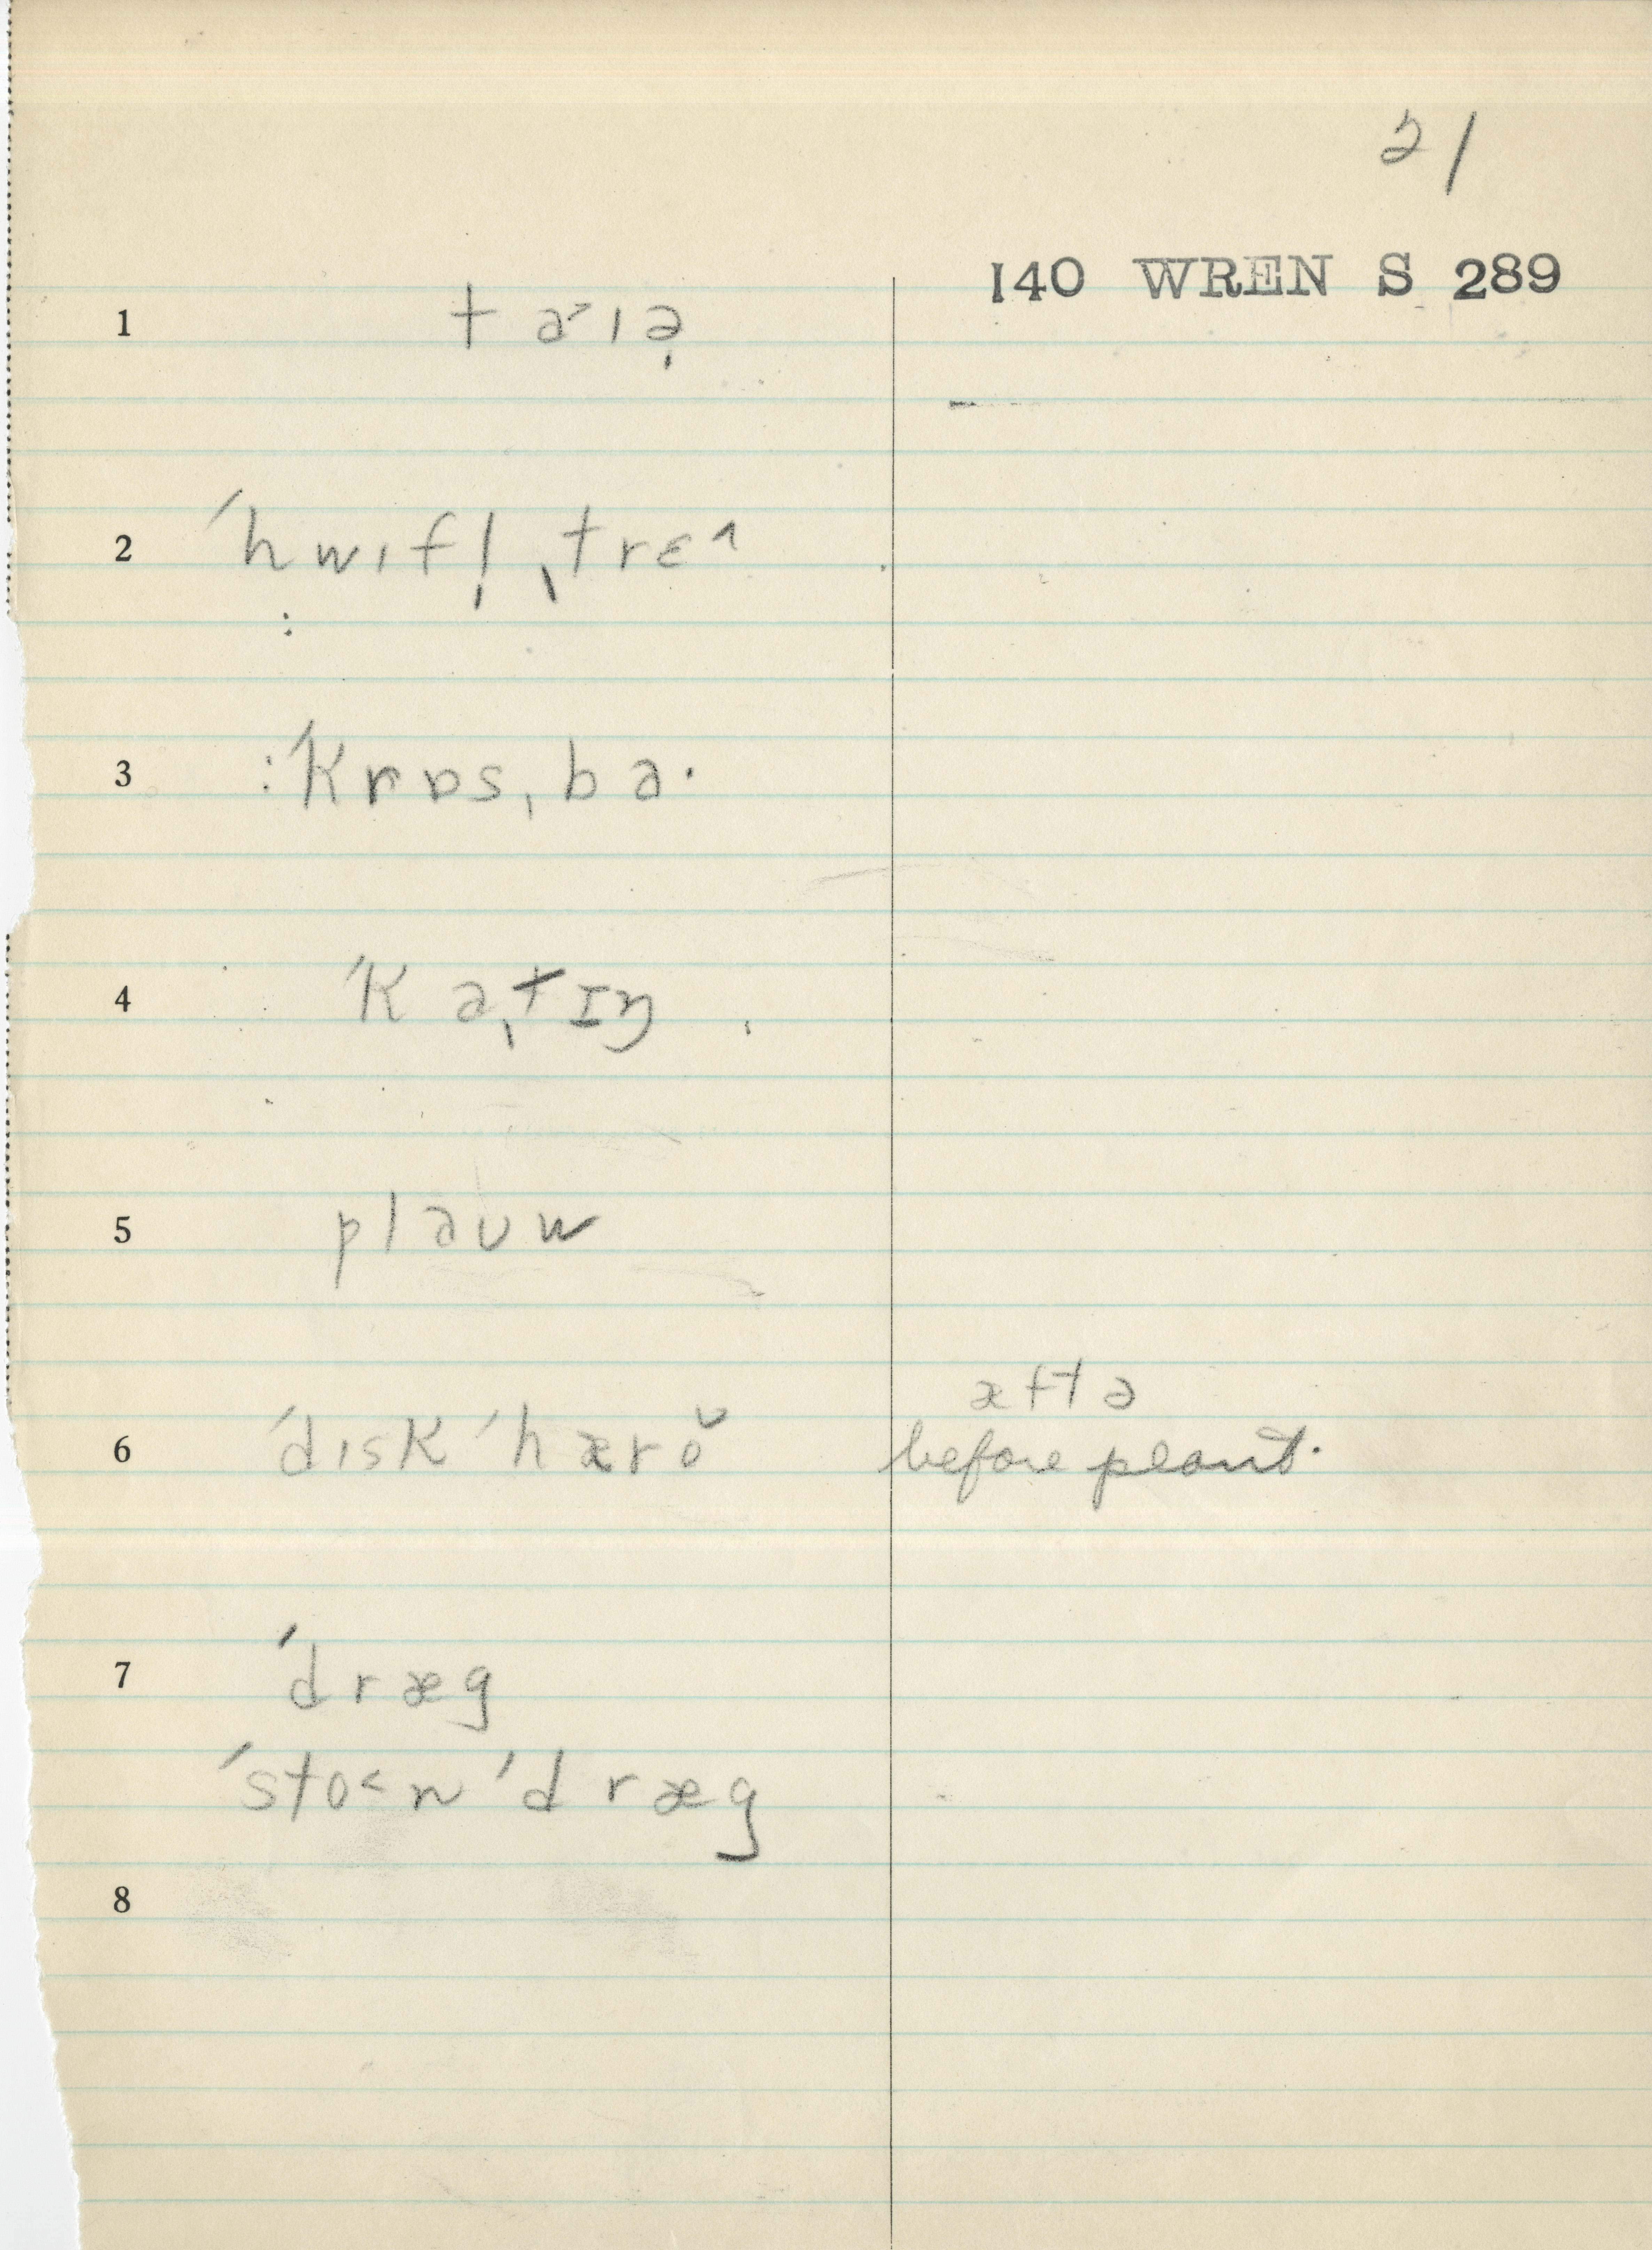 21
140 WREN S 289
1 taˊɪə̩
2 ˈhwɪfl̩ˌtrɛ^
3 :ˈkrɒsˌba·
4 ˈkaˌtɪŋ
5 plaʊw
6 ˈdɪskˈhæro˘
æftə
before plant.
7 ˈdræg
ˈsto<nˈdræg
8